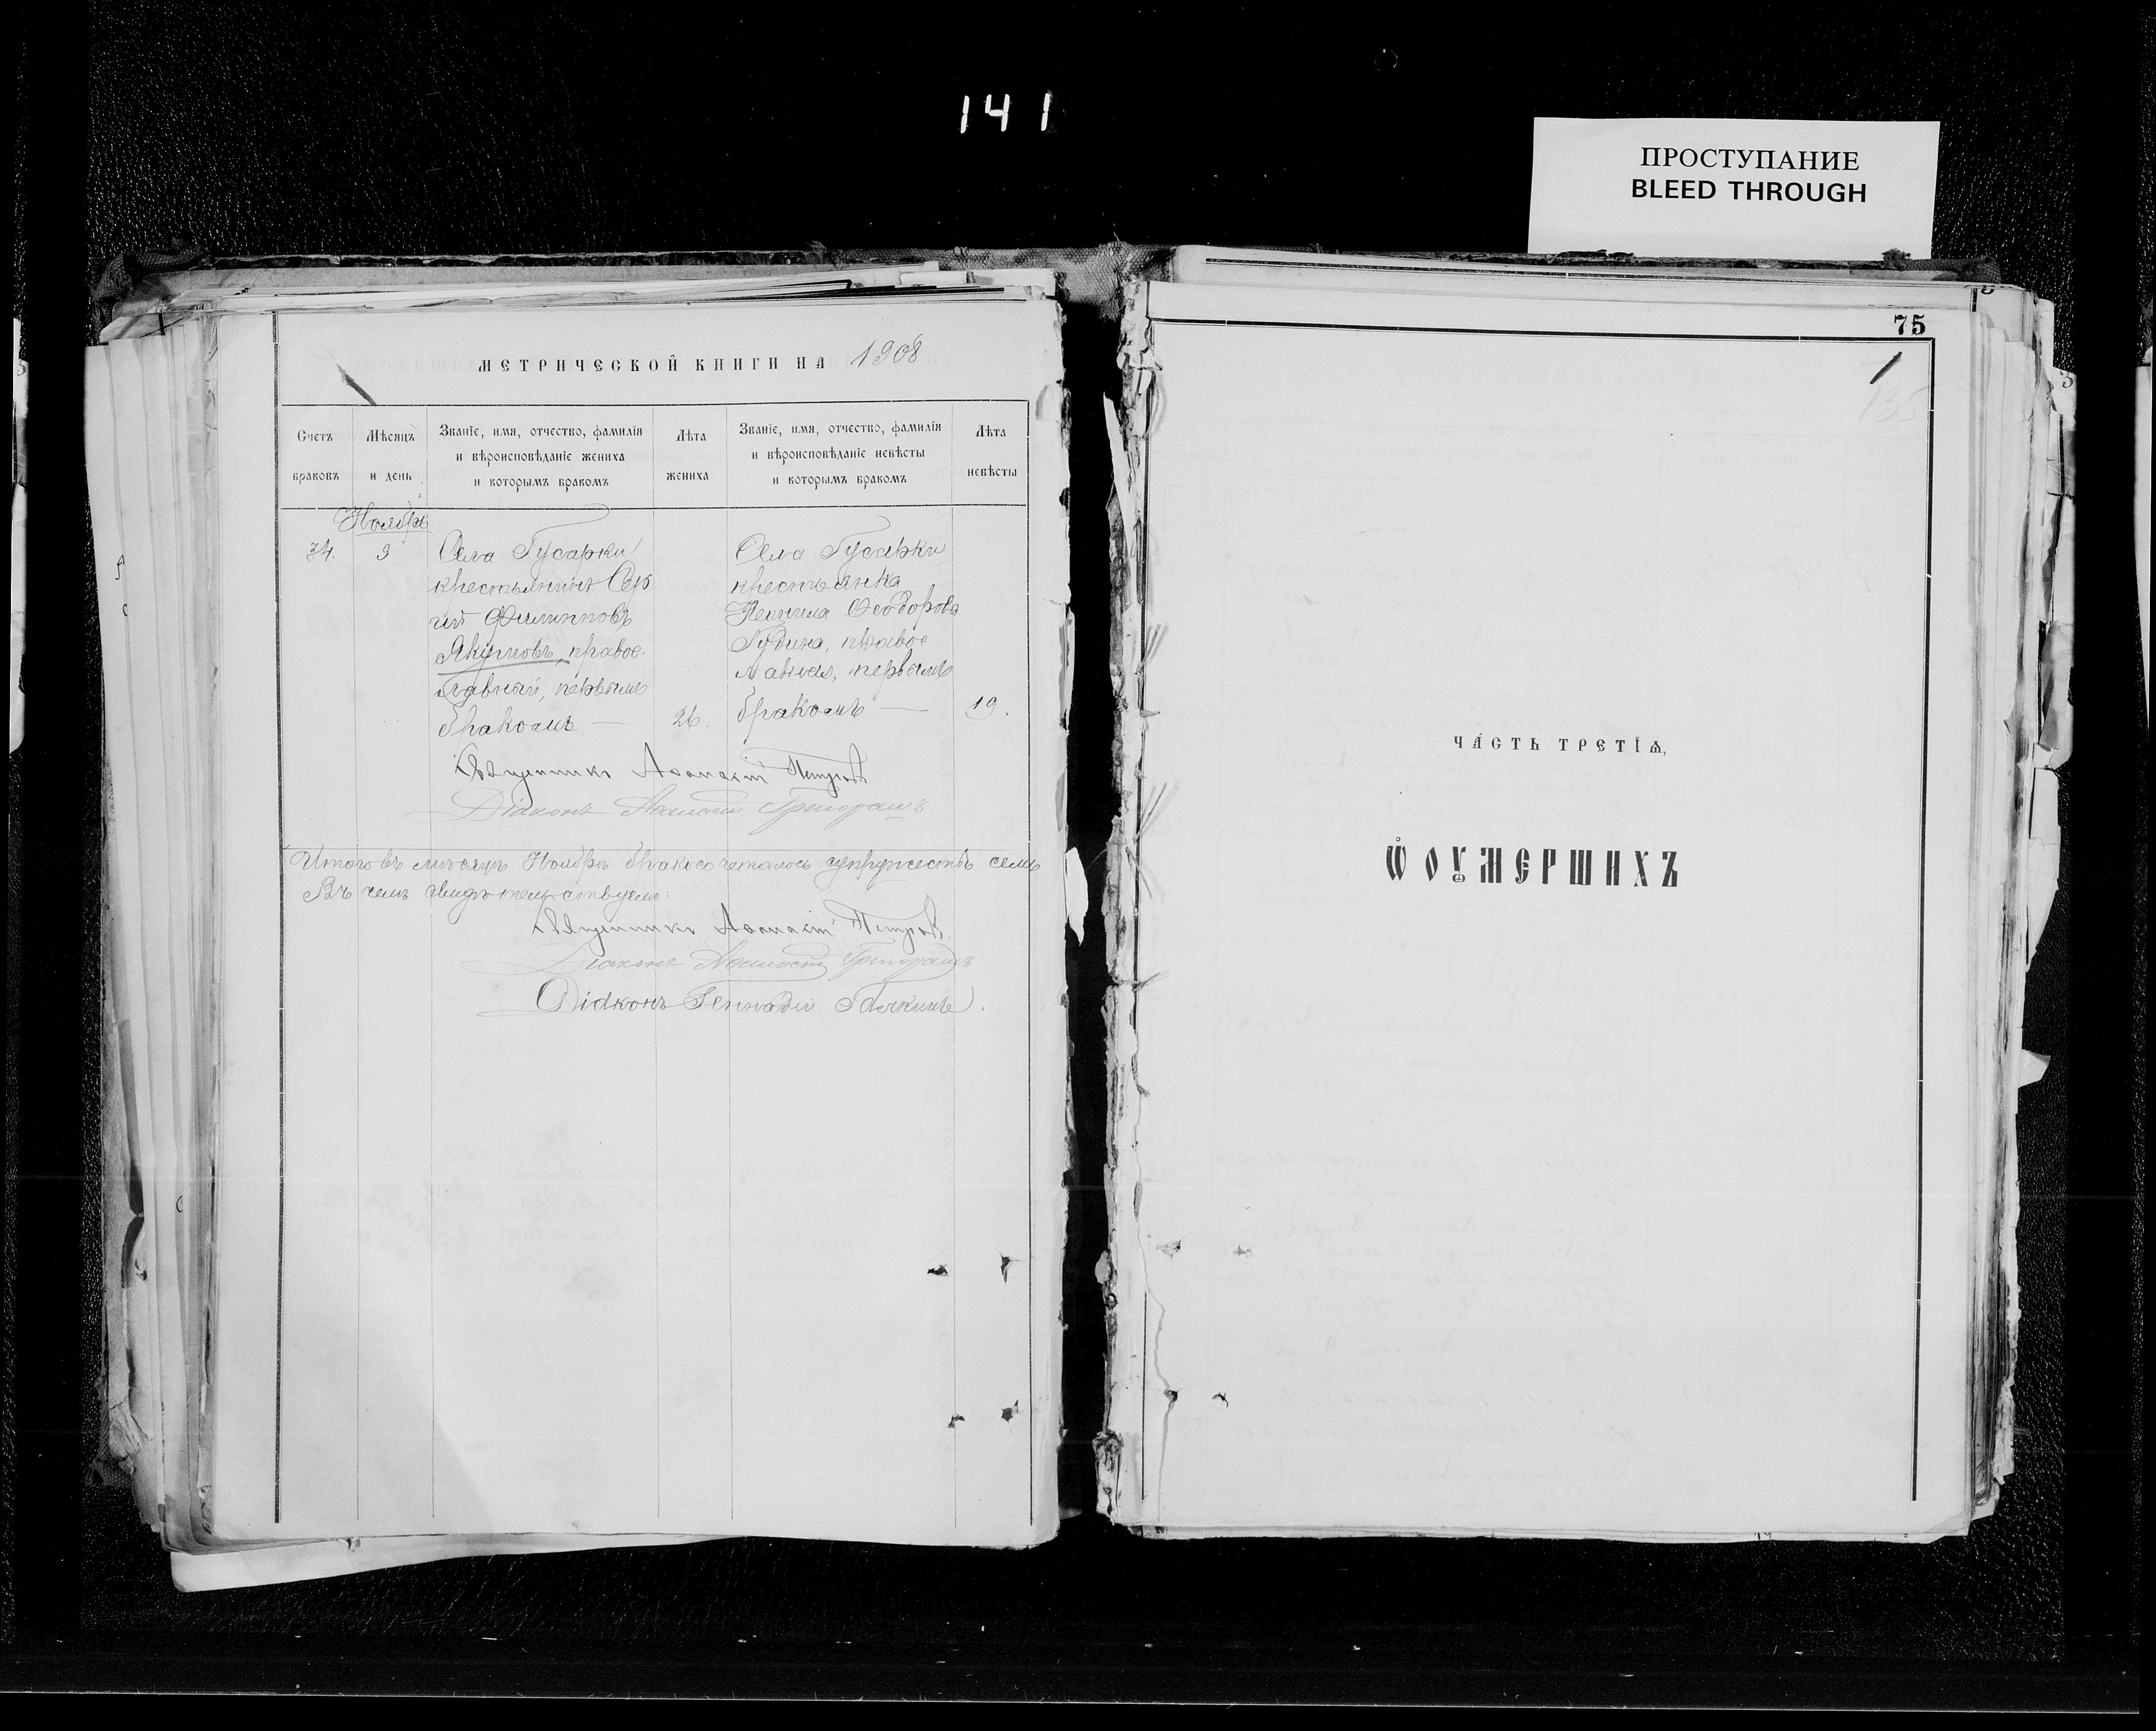 141
ПРОСТУПАНИЕ
BLEED THROUGH
МЕТРИЧЕСКОЙ КНИГИ НА 1908
Счетъ браковъ
Мѣсяцъ и день
Званїе, имя, отчество, фамилїя
и вѣроисповѣданїе жениха
и которымъ бракомъ
Лѣта жениха
Званїе, имя, отчество, фамилїя
и вѣроисповѣданїе невѣсты
и которымъ бракомъ
Лѣта невѣсты
Ноябрь
34. 9
Села Гусарки
крестьянинъ Сер
гій Филипповъ
Якимовъ, правос-
лавный, первымъ
бракомъ — 26.
Села Гусарки
крестьянка
Феодорова
Гудина, правос
лавная, первымъ
бракомъ — 19.
Священникъ Аѳанасій Петровъ
Діаконъ Аѳанасій Григорашъ
Итого въ мѣсяцѣ Ноябрѣ бракосочеталось супружествъ семь
Въ чемъ свидѣтельствуемъ:
Священникъ Аѳанасій Петровъ.
Діаконъ Аѳанасій Григорашъ
Діаконъ Геннадій
75
135
ЧА́СТЬ ТРЕТЇѦ,
Ѡ҆ ОУМЕРШИХЪ